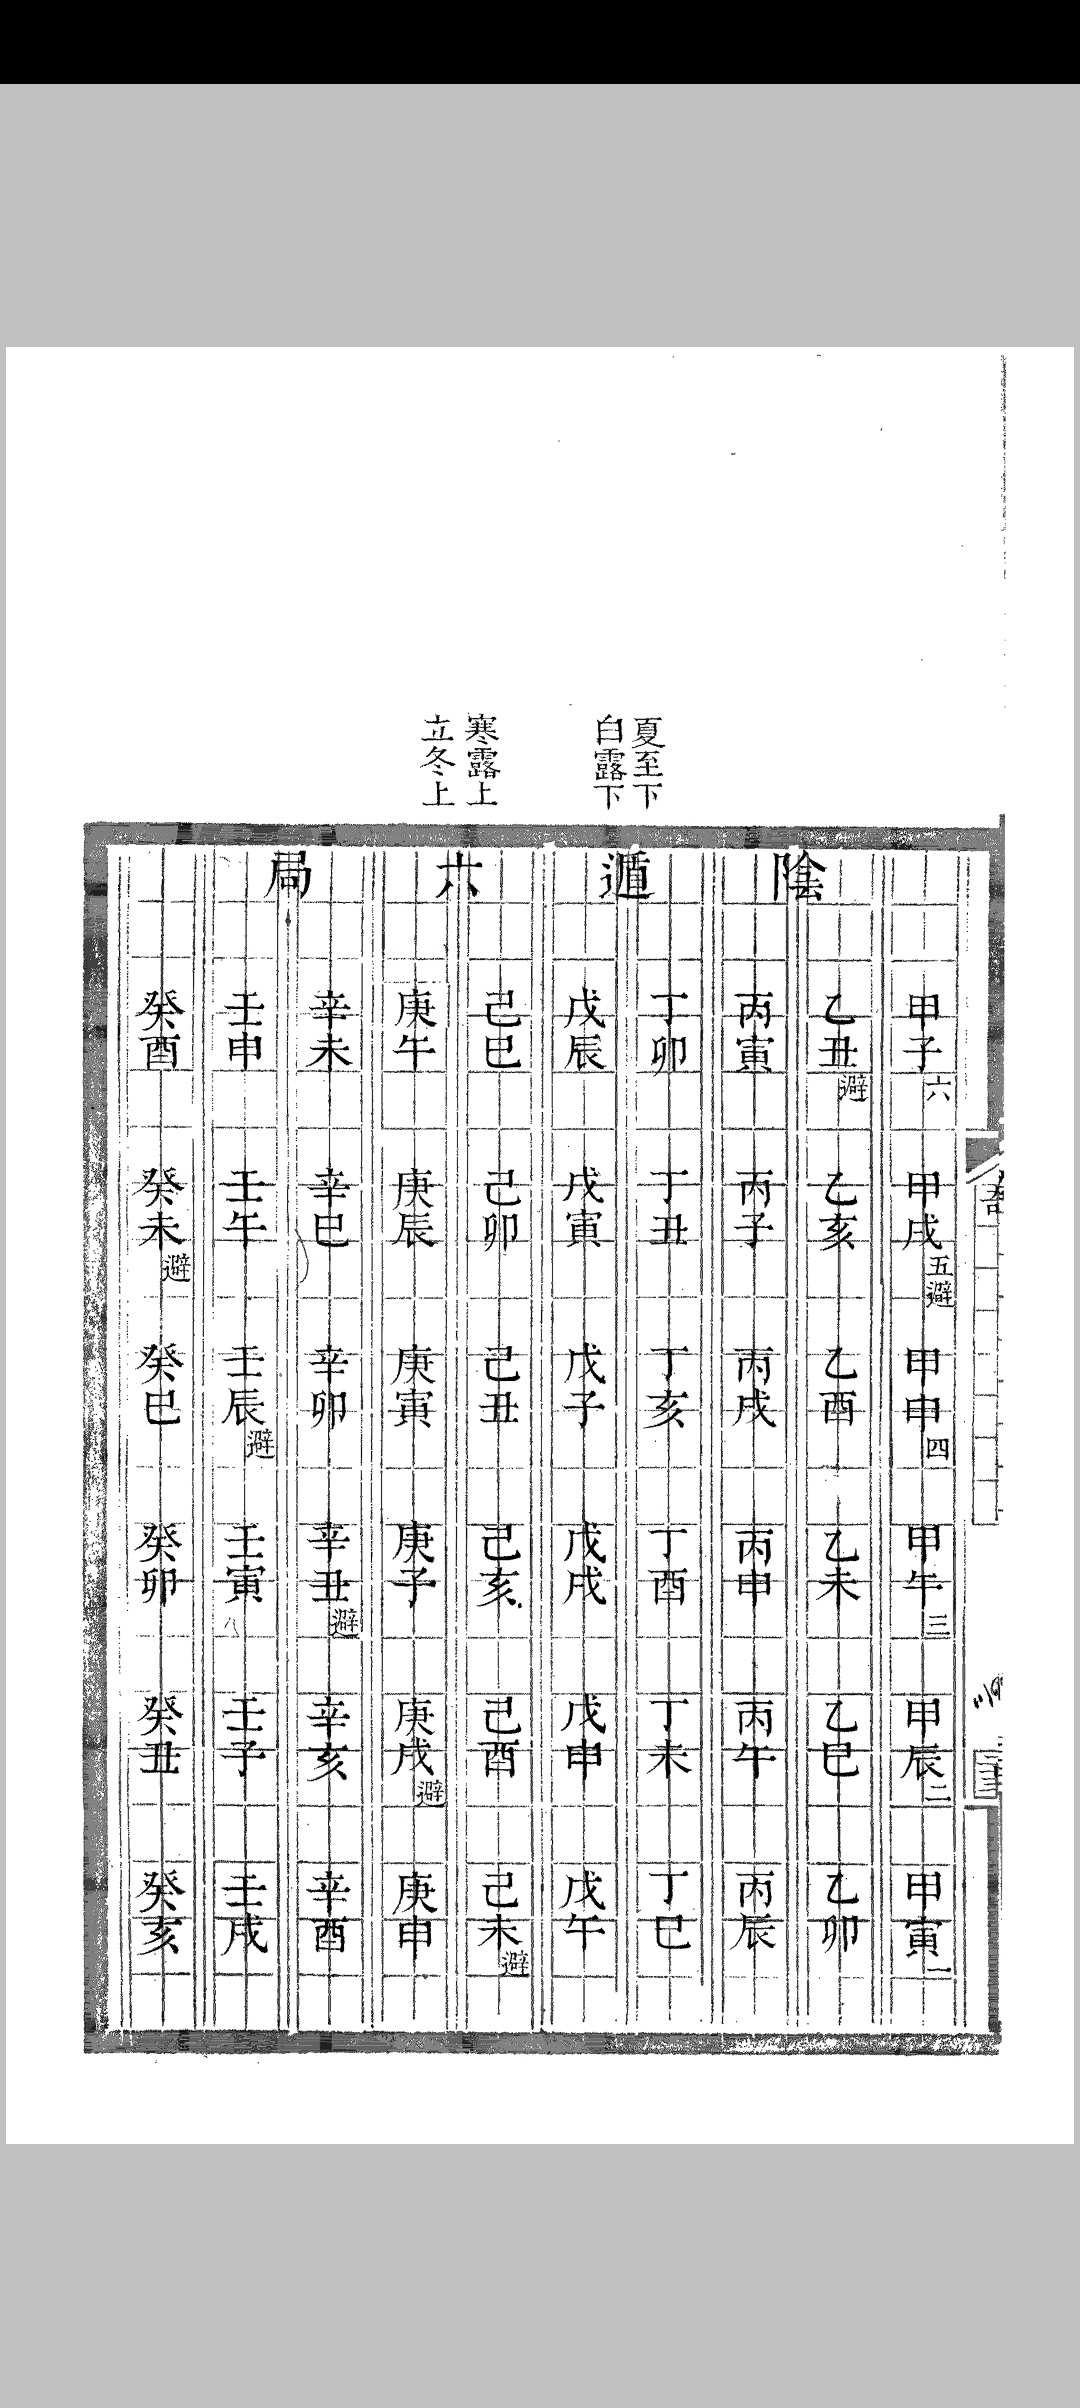 夏至下
白露下
寒露上
立冬上
陰遁六局
甲子六 甲戌五避 甲申四 甲午三 甲辰二 甲寅一
乙丑避 乙亥 乙酉 乙未 乙巳 乙卯
丙寅 丙子 丙戌 丙申 丙午 丙辰
丁卯 丁丑 丁亥 丁酉 丁未 丁巳
戊辰 戊寅 戊子 戊戌 戊申 戊午
己巳 己卯 己丑 己亥 己酉 己未避
庚午 庚辰 庚寅 庚子 庚戌避 庚申
辛未 辛巳 辛卯 辛丑避 辛亥 辛酉
壬申 壬午 壬辰避 壬寅 壬子 壬戌
癸酉 癸未避 癸巳 癸卯 癸丑 癸亥